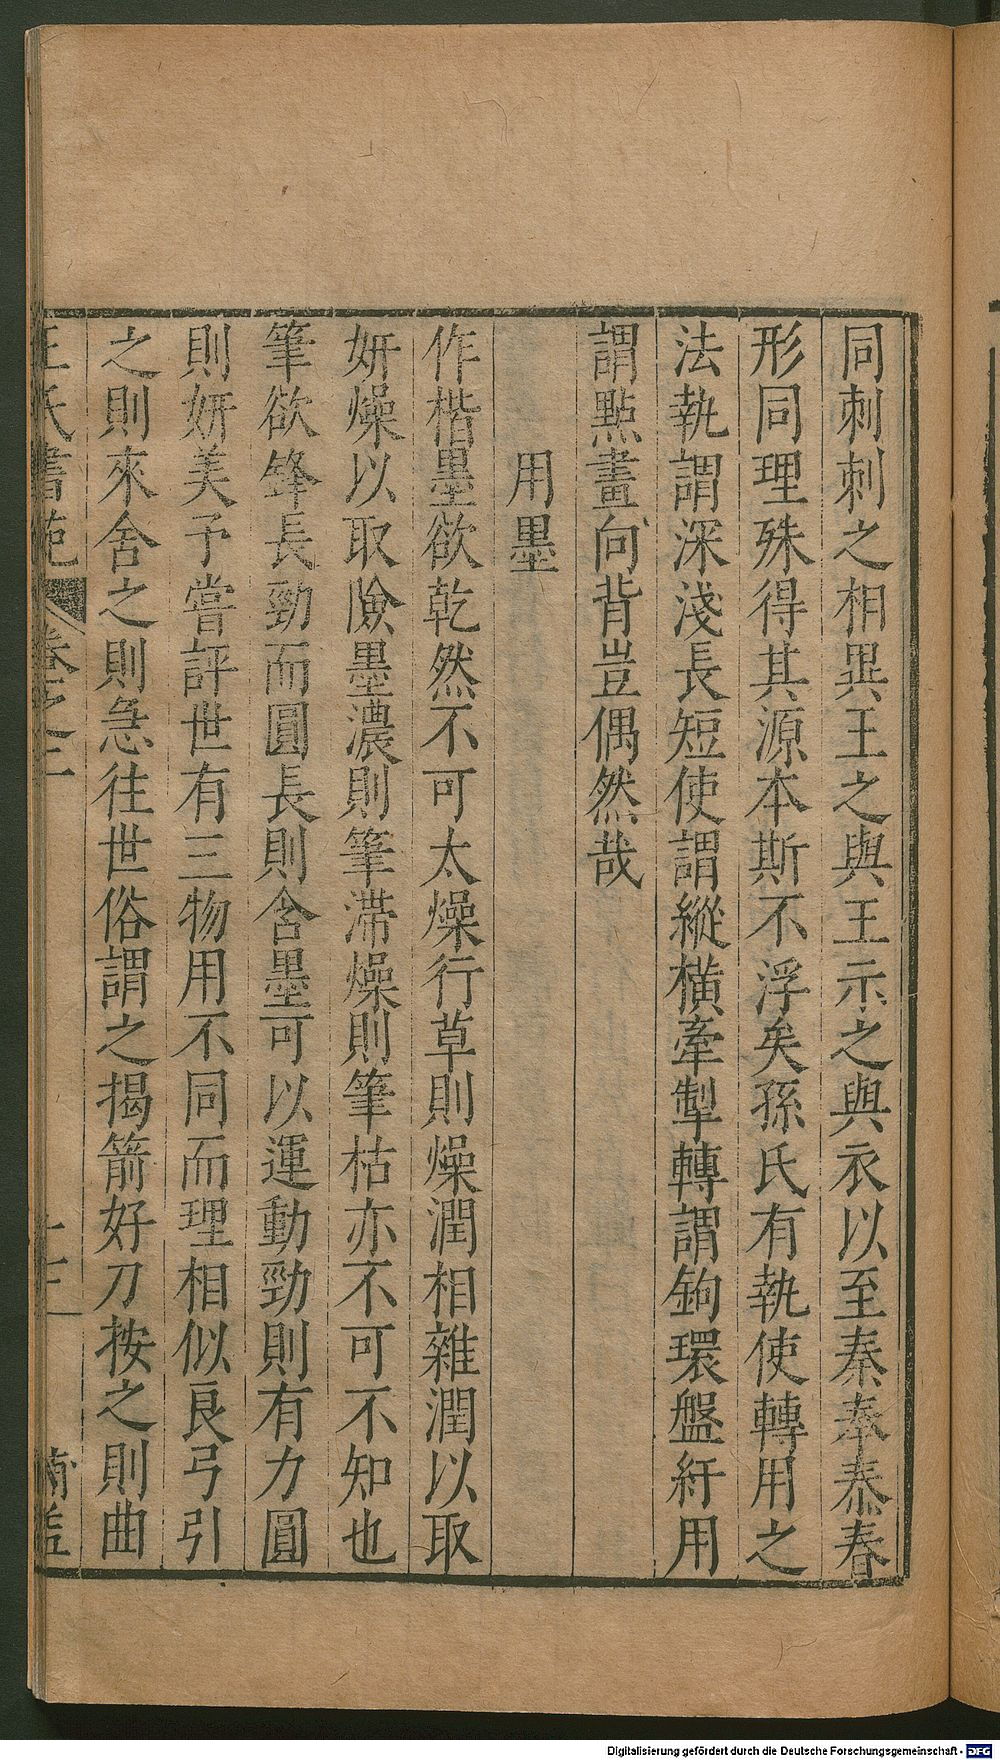 同刺刺之相異王之與王示之與衣以至秦奉泰春
形同理殊得其源本斯不浮矣孫氏有執使轉用之
法執謂深淺長短使謂縱橫牽掣轉謂鉤環盤紆用
謂點畫向背豈偶然哉
用墨
作楷墨欲乾然不可太燥行草則燥潤相雜潤以取
妍燥以取險墨濃則筆滯燥則筆枯亦不可不知也
筆欲鋒長勁而圓長則含墨可以運動勁則有力圓
則妍美予嘗評世有三物用不同而理相似良弓引
之則來舍之則急往世俗謂之揭箭好刀按之則曲
王氏書苑 卷之二 十三
Digitalisierung gefördert durch die Deutsche Forschungsgemeinschaft - DFG